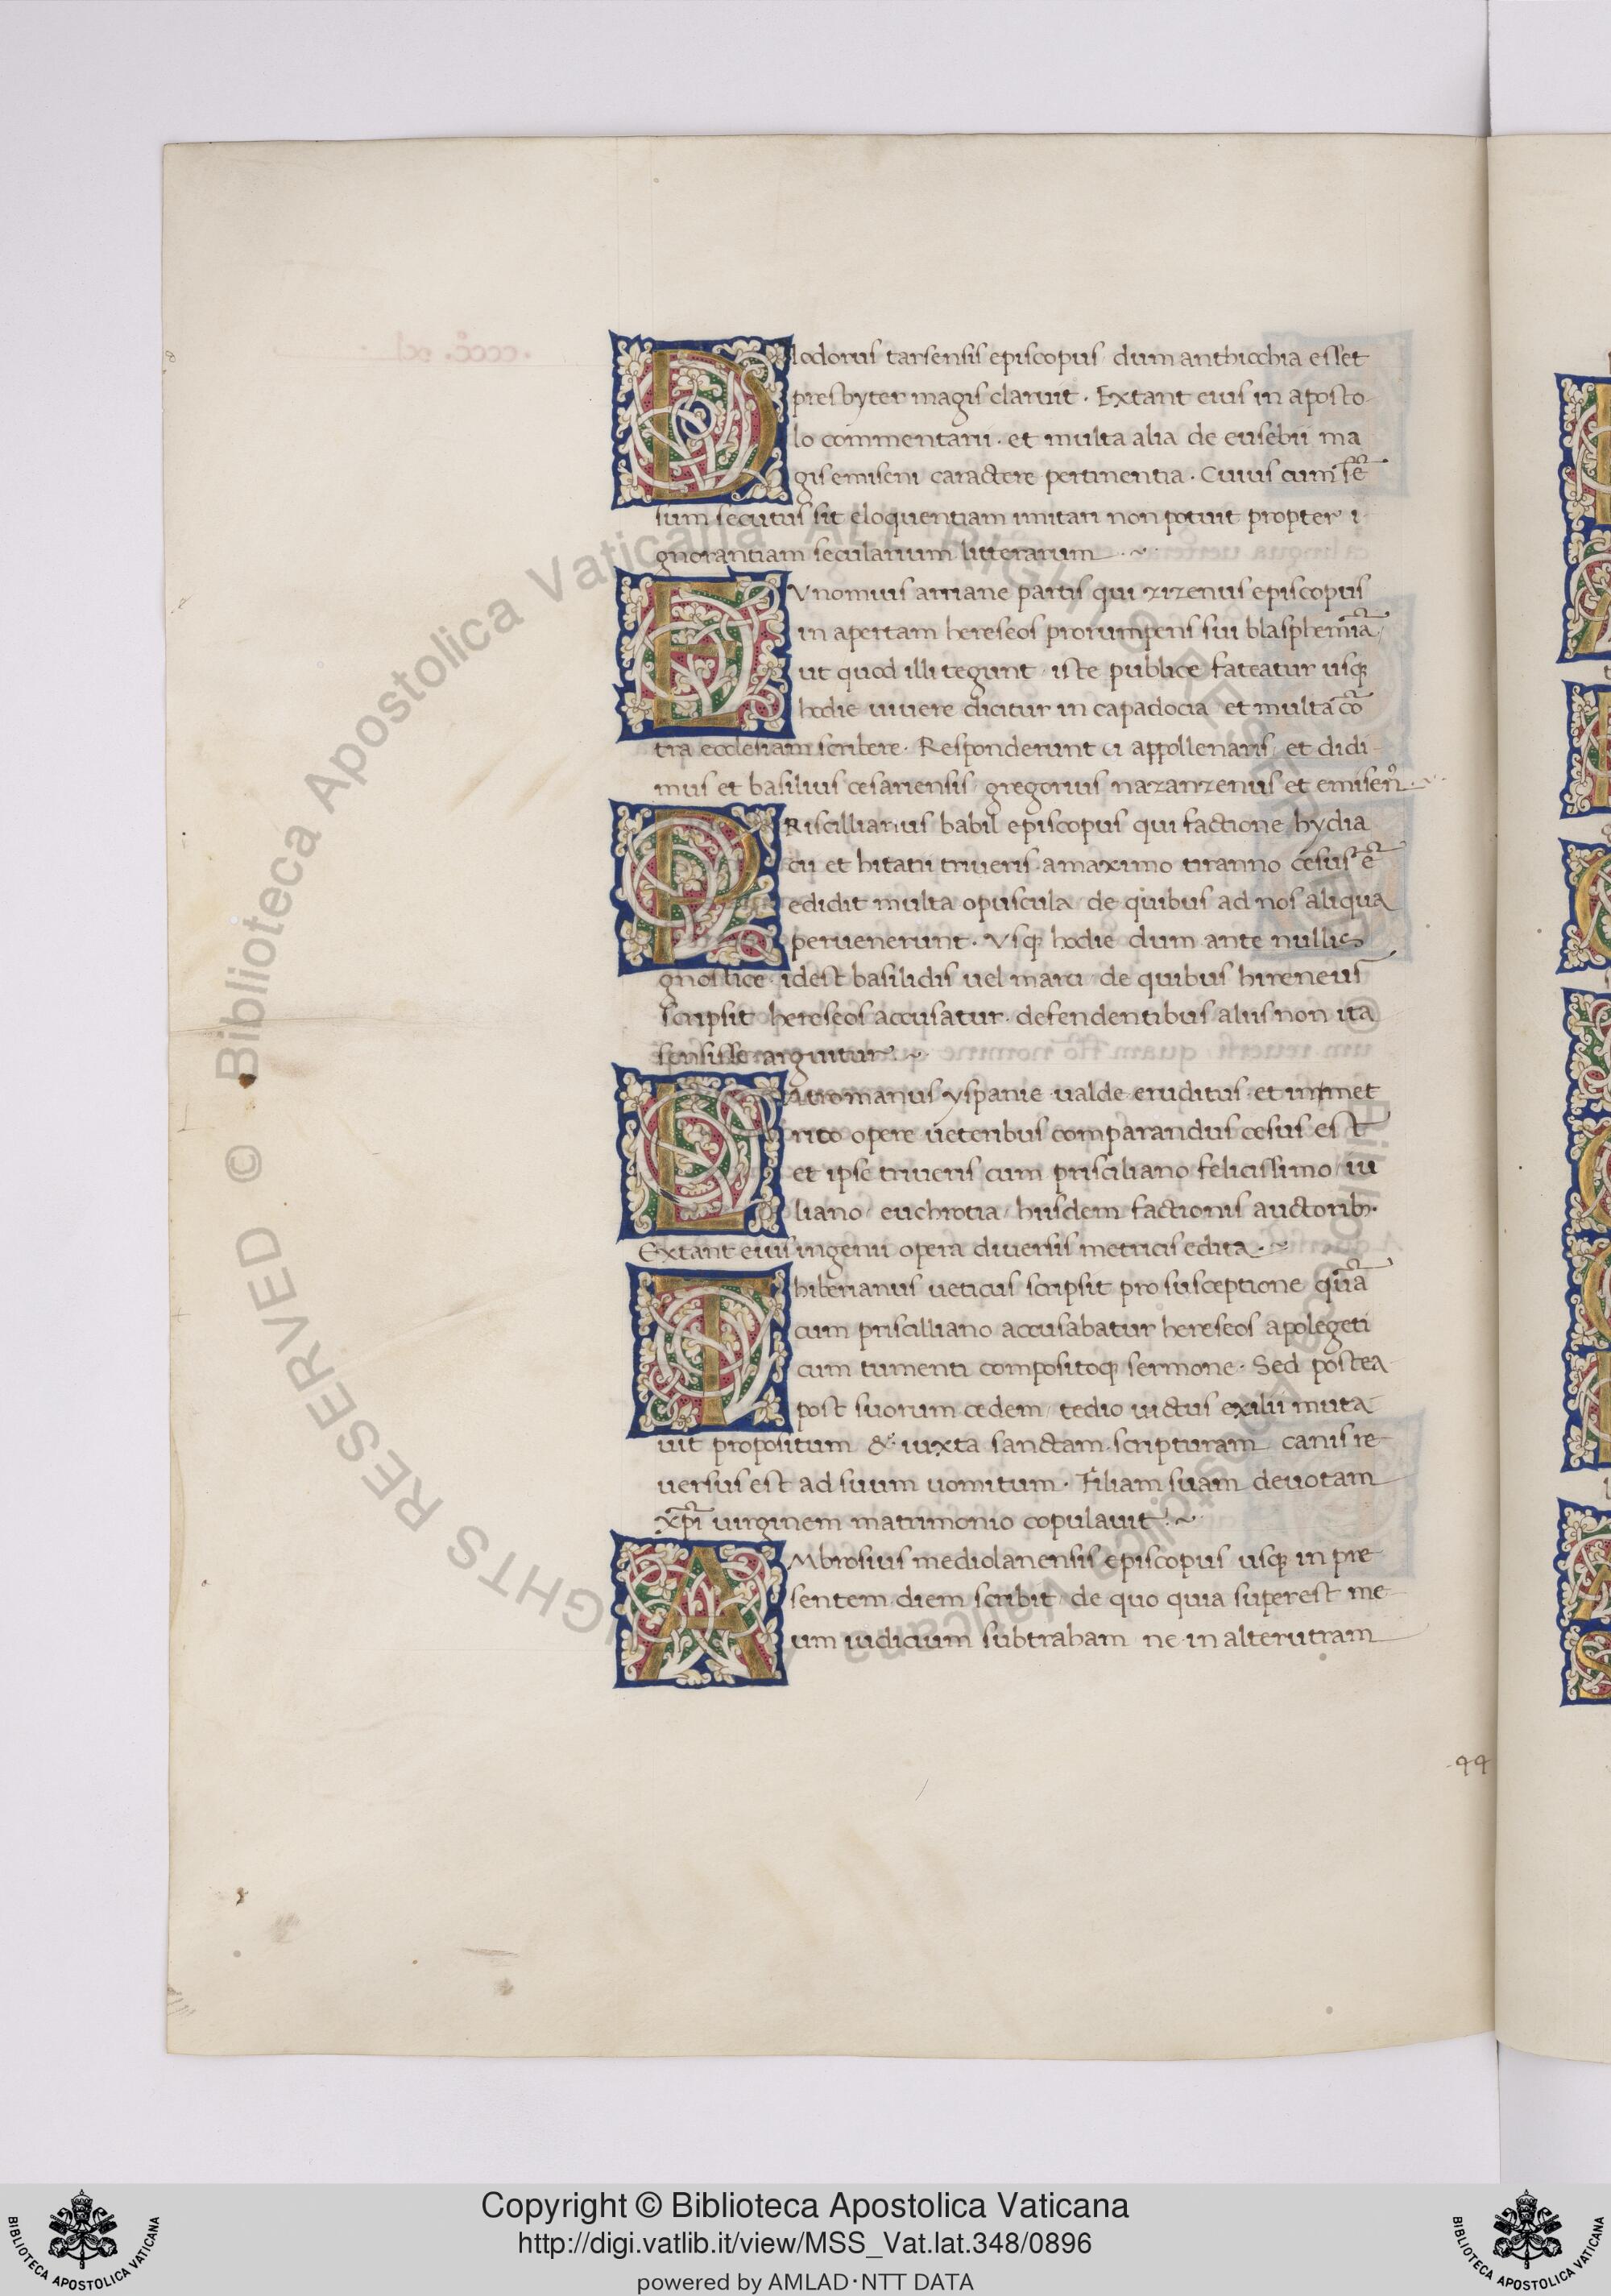 Diodorus tarsensis episcopus dum anthiochia esset
presbyter magis claruit. Extant eius in aposto
lo commentarii. et multa alia de eusebii ma
gis emiseni caractere pertinentia. Cuius cum sē
sum secutus sit eloquentiam imitari non potuit propter i
gnorantiam secularium litterarum
EVnomius arriane partis qui zizenus episcopus
in apertam hereseos prorumpens sui blasphemiā
ut quod illi tegunt iste publice fateatur usqꝫ
hodie uiuere dicitur in capadocia et multa cō
tra ecclesiam scribere. Responderunt ei appollenaris et didi
mus et basilius cesariensis gregorius nazanzenus et emiseñ.
PRiscillianus babil episcopus qui factione hydia
cii et hitatii triueris a maximo tiranno cesus ē
edidit multa opuscula de quibus ad nos aliqua
peruenerunt. Vsqꝫ hodie dum ante nullis
gnostice idest basilidis uel marci de quibus hireneus
scripsit hereseos accusatur defendentibus aliis non ita
sensisse arguitur
yspanie ualde eruditus et immet
rico opere ueteribus comparandus cesus est
et ipse triueris cum prisciliano felicissimo iu
liano euchrotia huisdem factionis auctoribꝫ.
Extant eius ingenii opera diuersis metricis edita.
Thiberianus ueticus scripsit pro susceptione quā
cum priscilliano accusabatur hereseos apolegeti
cum tumenti compositoqꝫ sermone. Sed postea
post suorum cedem tedio uictus exilii muta
uit propositum & iuxta sanctam scripturam canis re
uersus est ad suum uomitum. Filiam suam deuotam
xp̄i uirginem matrimonio copulauit
AMbrosius mediolanensis episcopus usqꝫ in pre
sentem diem scribit de quo quia superest me
um iudicium subtraham ne in alterutram
44
© Biblioteca Apostolica Vaticana ALL RIGHTS RESERVED
Copyright © Biblioteca Apostolica Vaticana
http://digi.vatlib.it/view/MSS_Vat.lat.348/0896
powered by AMLAD·NTT DATA
BIBLIOTECA APOSTOLICA VATICANA
BIBLIOTECA APOSTOLICA VATICANA